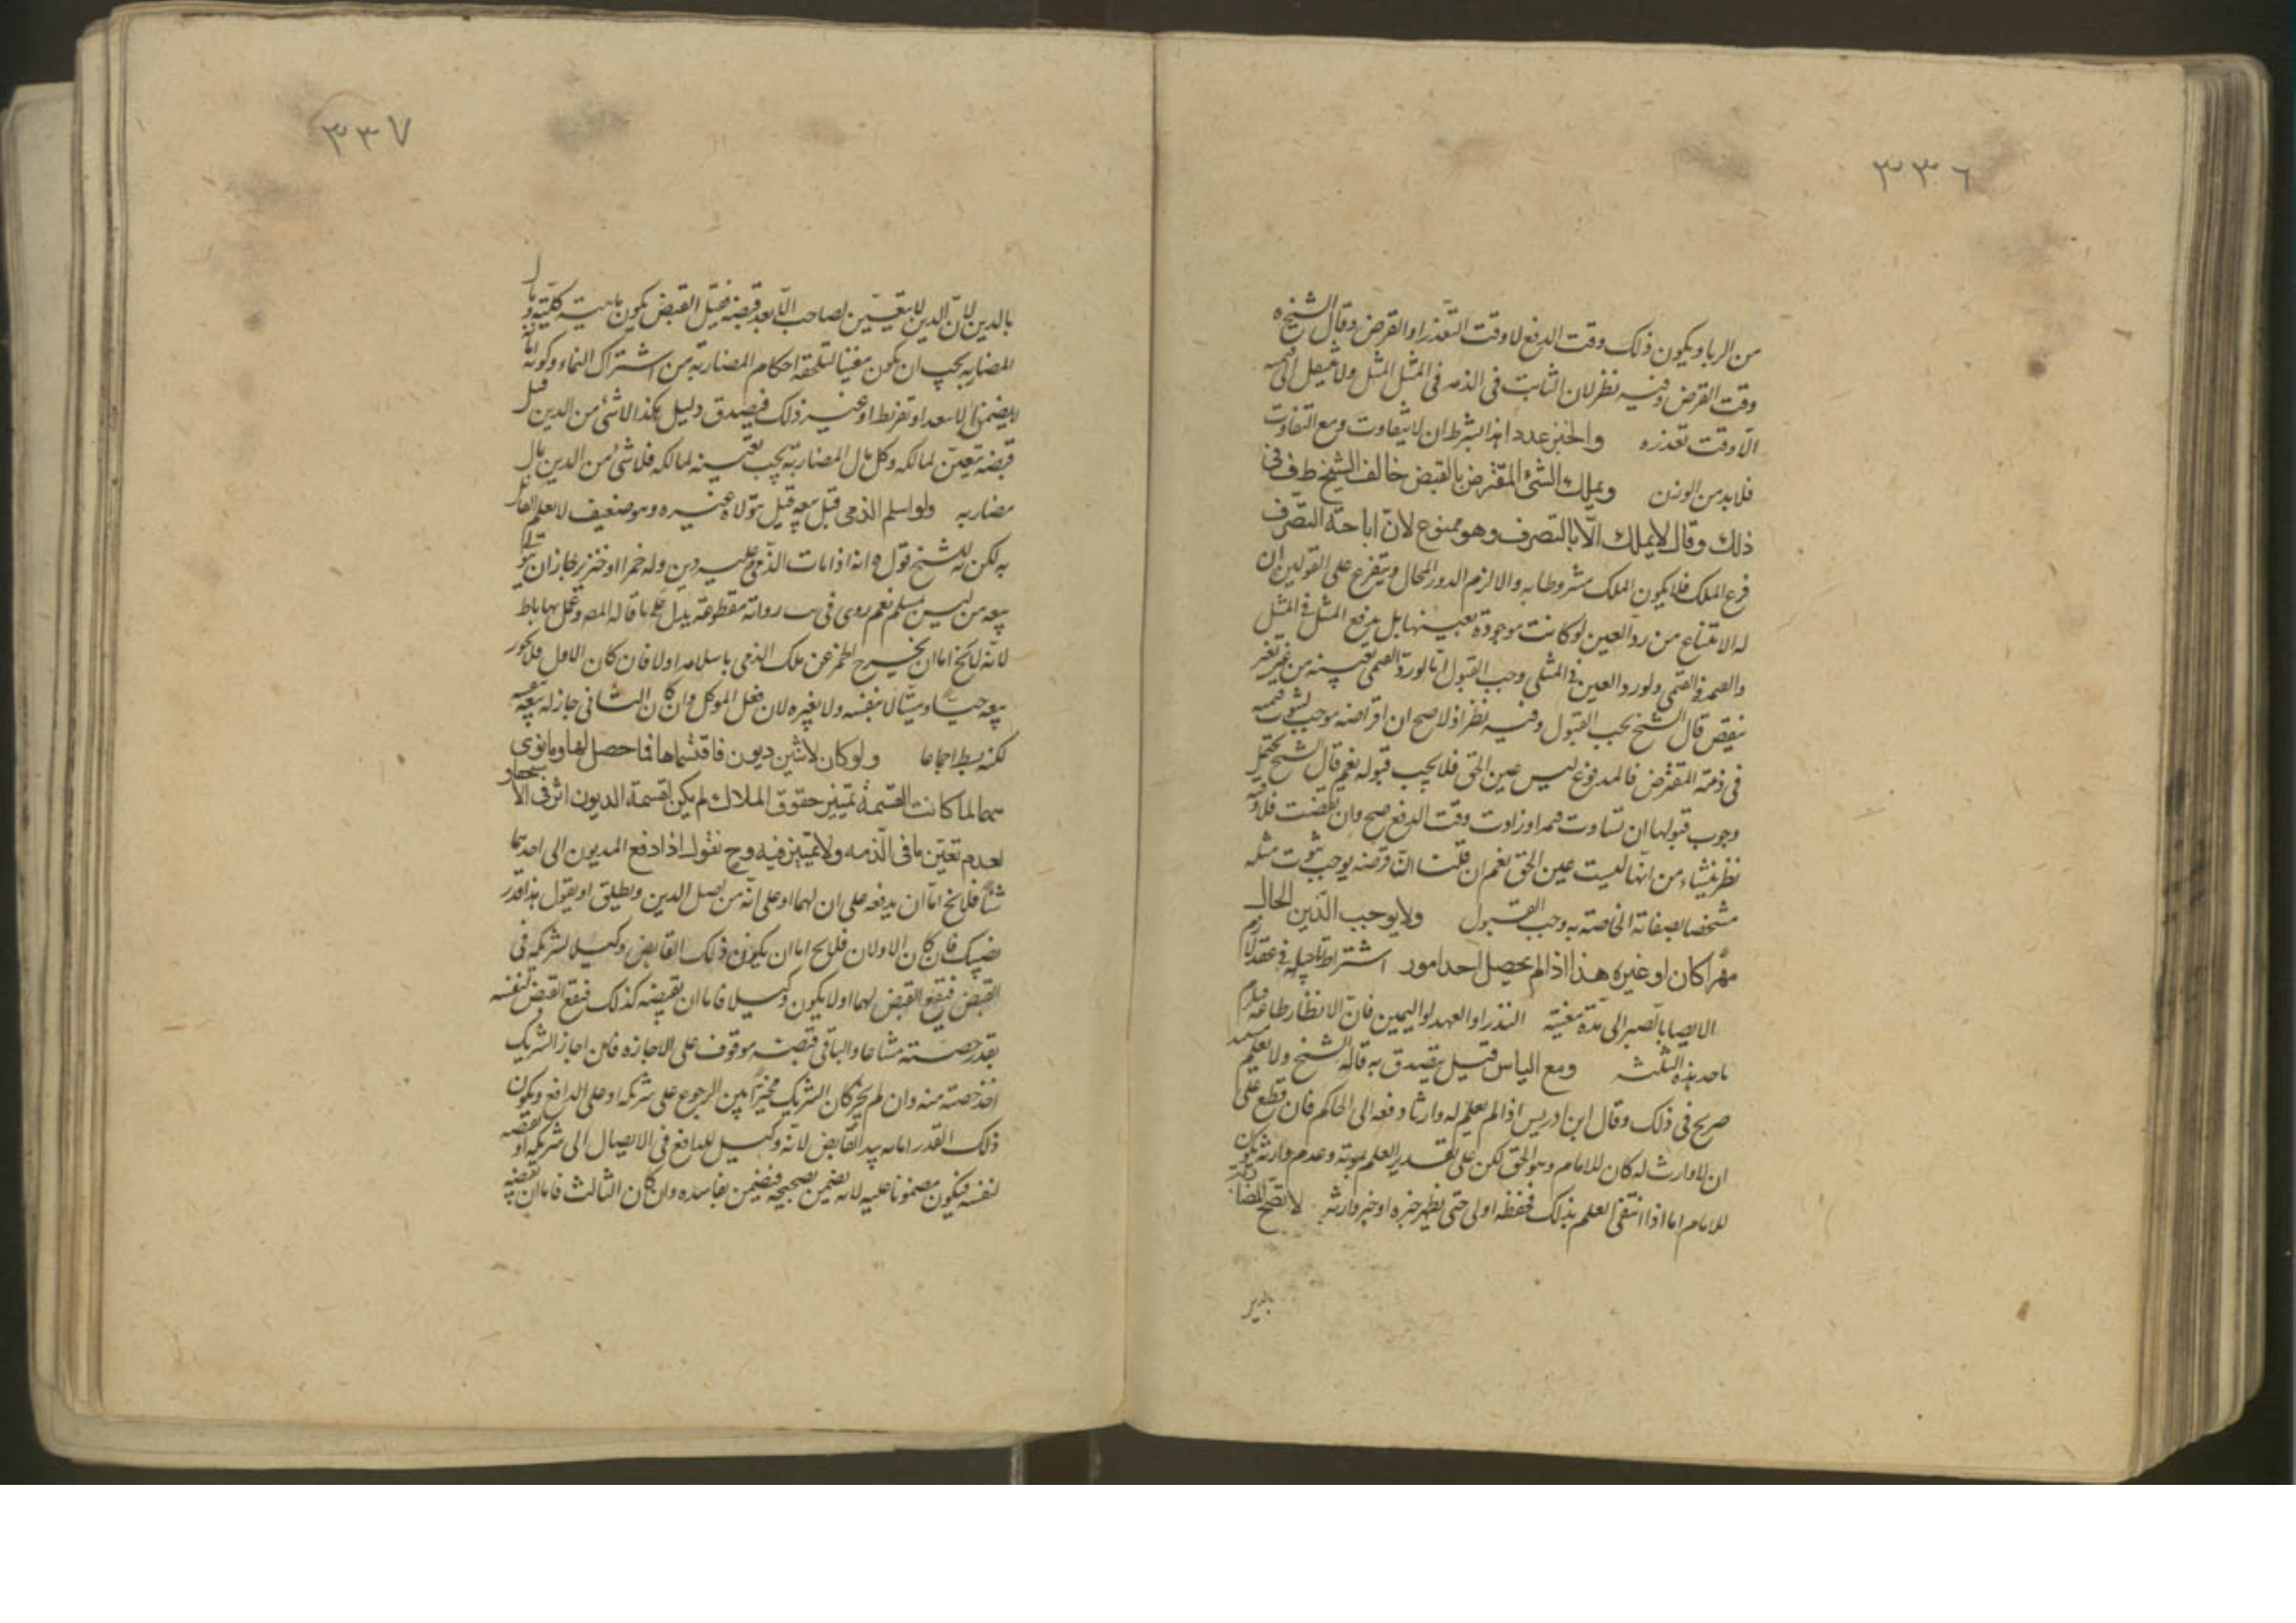 ٣٣٦
من الربا ويكون ذلك وقت الدفع لا وقت التعذر او القرض وقال الشيخ ره
وقت القرض وفيه نظر لان الثابت فى الذمه فى المثل المثل ولا ينتقل الى قيمه
الّا وقت تعذره والخبز عددا هذا بشرط ان لا يتفاوت ومع التفاوت
فلابد من الوزن ويملك الشئ المقترض بالقبض خالف الشيخ ط ف فى
ذلك وقال لا يملك الّا بالتصرف وهو ممنوع لانّ اباحة التصرف
فرع الملك فلا يكون الملك مشروطا به والا لزم الدور المحال ويتفرع على القولين ان
له الامتناع من ردّ العين لو كانت موجودة بعينها بل يدفع المثل فى المثل
والقيمه فى القيمى ولو رد العين فى المثلى وجب القبول امّا لو رد القيمى بعينه من غير تغير
بنقص قال الشيخ يجب القبول وفيه نظر اذ لاصح ان اقراضه موجب لثبوت قيمته
فى ذمة المقترض فالمدفوع ليس عين الحق فلا يجب قبوله نعم قال الشيخ يحتمل
وجوب قبولها ان تساوت قيمه او زادت وقت الدفع صح وان نقصت فلا وفيه
نظر ينشاء من انّها ليست عين الحق نعم ان قلنا انّ قرضه يوجب ثبوت مثله
مشخصا بصفاته الخاصته به وجب القبول ولا يوجب الدّين الحال
مهرًا كان او غيره هذا اذا لم يحصل احد امور اشتراط تاجيله فى عقد لازم
الايصا بالصبر الى مدّة معينة النذر او العهد او اليمين فانّ الانظار طاعه فيلزم
باحد هذه الثلثه ومع الياس قيل يتصدق به قاله الشيخ ولا يعلم
صريح فى ذلك وقال ابن ادريس اذا لم يعلم له وارثا دفعه الى الحاكم فان قطع على
ان لا وارث له كان للامام وهو الحق لكن على تقدير العلم بموته وعدم وارثه يكون
للامام اما اذا انتفى العلم بذلك فحفظه اولى حتى يظهر خبره او خبر وارثه لا تصح المضاربة
بالدين
٣٣٧
بالدين لانّ الدين لا يتعيّن لصاحب الّا بعد قبضه فقبل القبض يكون ماهية كلّية ومال
المضاربه يجب ان يكون معينا لتلحقه احكام المضاربة من اشتراك النماء وكونه امانة
لا يضمن الا بتعد او تفريط او غير ذلك فيصدق دليل هكذا لا شئ من الدين قبل
قبضه بتعيّن لمالكه وكل مال المضاربة يجب تعيينه لمالكه فلا شئ من الدين بمال
مضاربه ولو اسلم الذمى قبل بيعه قيل يتولاه غيره وهو ضعيف لا نعلم القائل
به لكن للشيخ قول ه انه اذا مات الذّمى وعليه دين وله خمر او خنزير جاز ان يتولى
بيعه من ليس بمسلم نعم روى فى يب رواية مقطوعة يدل على ما قاله المصه وعمل بها باطل
لانّه لا يخ اما ان يخرج الخمر عن ملك الذمى باسلامه اولا فان كان الاول فلا يجوز
بيعه حيا وميتا لا بنفسه ولا بغيره لان فعل الموكل وان كان الثانى جاز له بيعه بنفسه
لكنه بط اجماعا ولو كان لاثنين ديون فاقتسماها فما حصل لهما وما توى
منهما لما كانت القسمة تمييز حقوق الملاك لم يكن لقسمة الديون اثر فى الاستحقاق
لعدم تعيّن ما فى الذّمه ولا تمييز فيه وح نقول اذا دفع المديون الى احدهما
شئا فلا يخ امّا ان يدفعه على ان لهما او على انّه من اصل الدين ويطلق او يقول هذا قدر
نصيبك فان كان الاولان فلا يخ اما ان يكون ذلك القابض وكيلا لشريكه فى
القبض فيقع القبض لهما او لا يكون وكيلا فاما ان يقبضه كذلك فيقع القبض لنفسه
بقدر حصته مشاعا والباقى قبضه موقوف على الاجازه فان اجاز الشريك
اخذ حصته منه وان لم يجز كان الشريك مخيّرًا بين الرجوع على شريكه او على الدافع ويكون
ذلك القدر امانه بيد القابض لانّه وكيل للدافع فى الايصال الى شريكه او يقبضه
لنفسه فيكون مضمونا عليه لانه يضمن بصحيحه فيضمن بفاسده وان كان الثالث فاما ان يقبضه